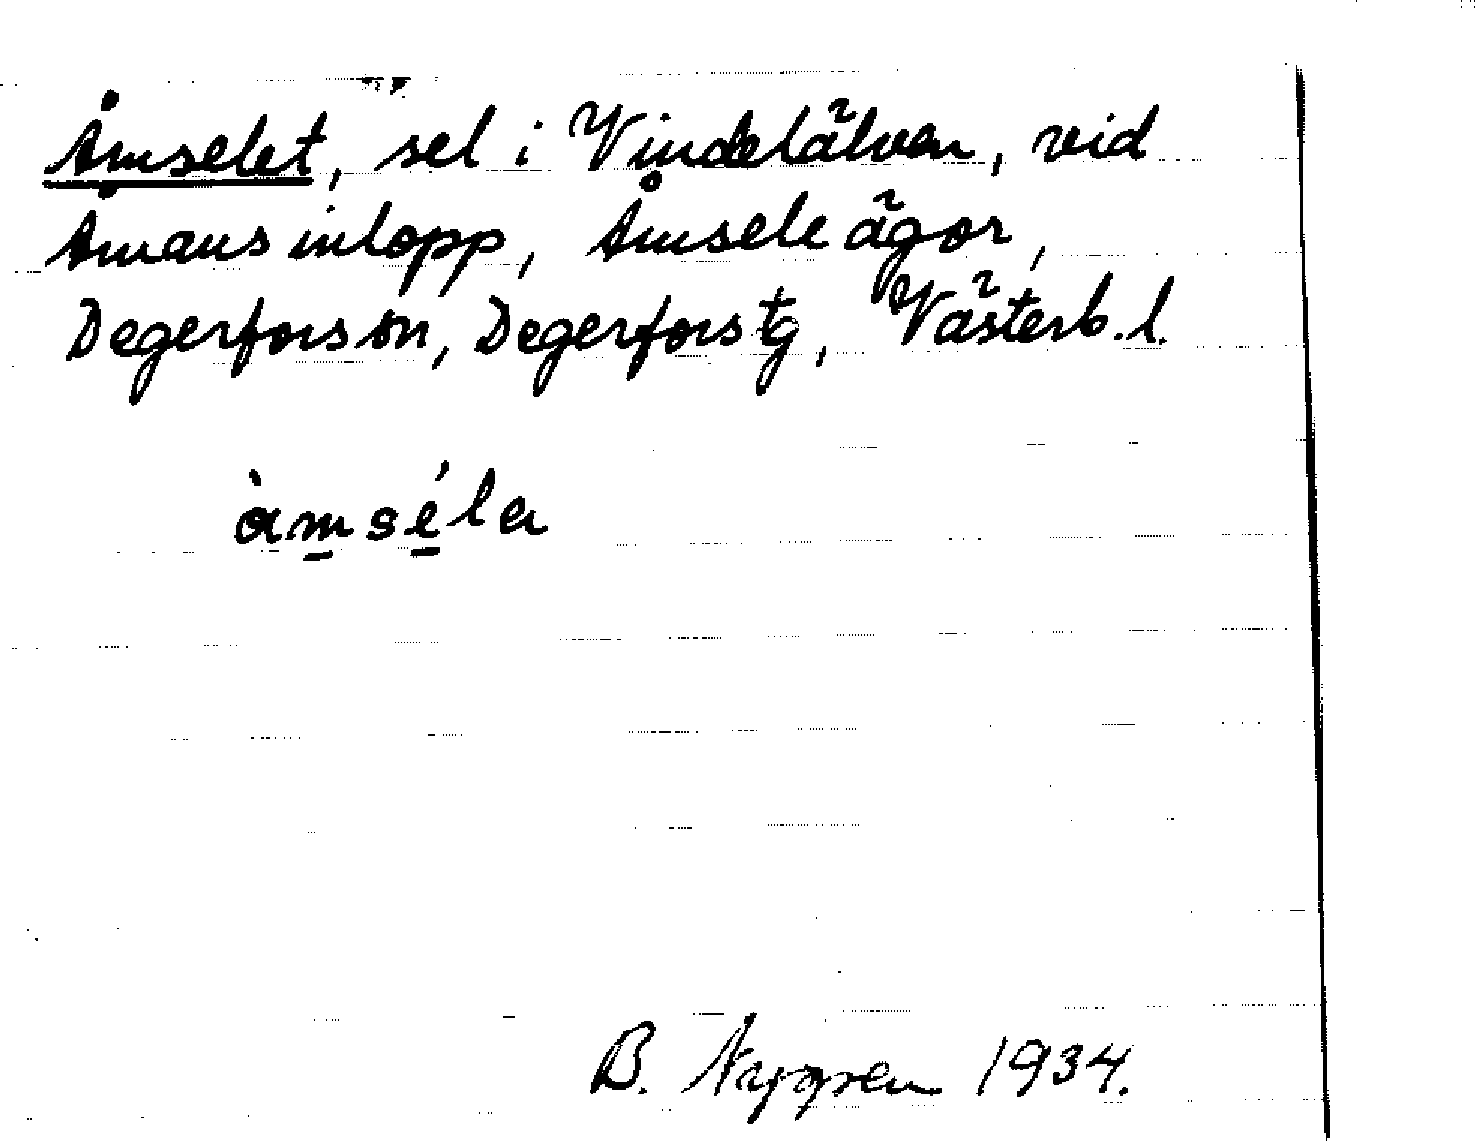 Åmselet, sel i Vindelälven, vid
Åmans inlopp, Åmsele ägor,
Degerfors sn, Degerfors tg, Västerb. l.
àmséla
B. Nygren 1934.